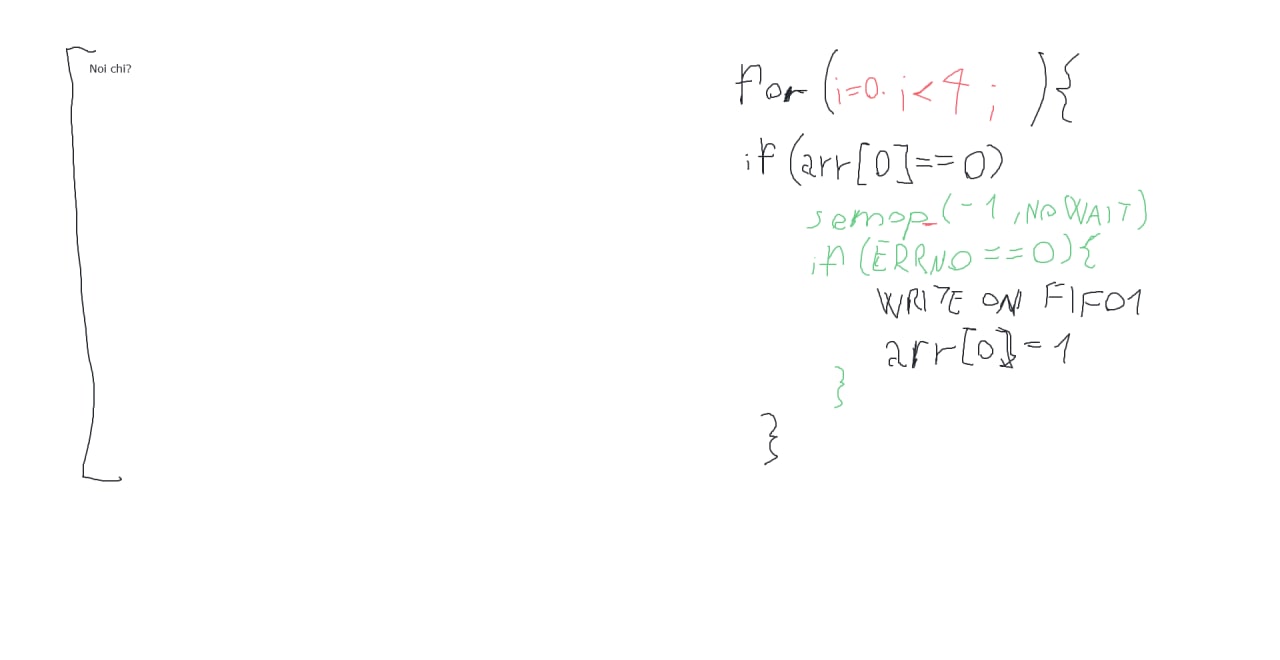 Noi chi?
for (i=0. i<4 ; ){
if (arr[0]==0)
semop(-1, NOWAIT)
if (ERRNO==0){
WRITE ON FIFO1
arr[0]=1
}
}